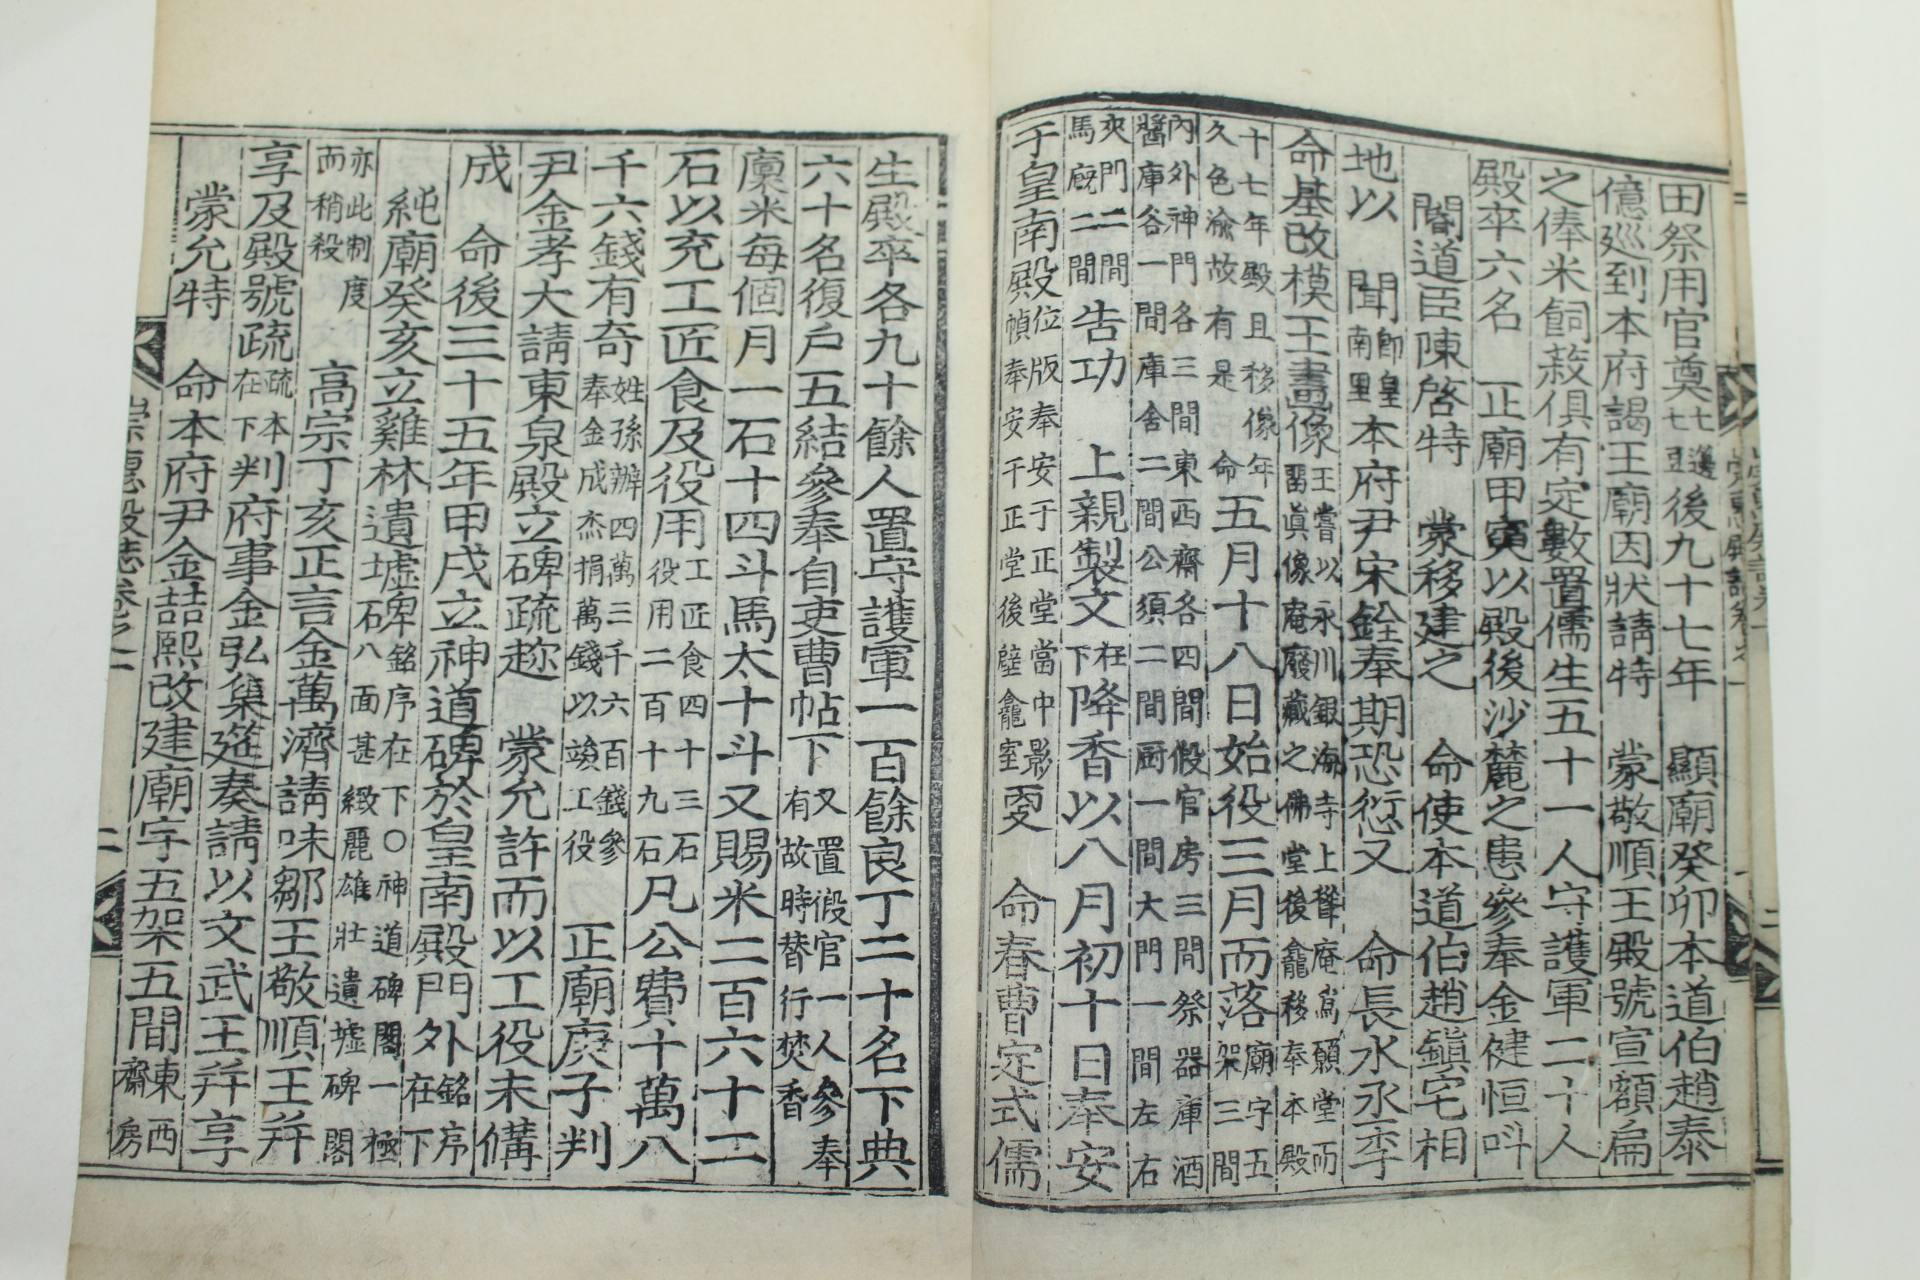 田祭用官奠七籩七豆後九十七年 顯廟癸卯本道伯趙泰
億廵到本府謁王廟因狀請特 蒙敬順王殿號宣額扁
之俸米飼䓁俱有定數置儒生五十一人守護軍二十人
殿卒六名 正廟甲寅以殿後沙麓之患參奉金健恒呌
閽道臣陳啓特 蒙移建之 命使本道伯趙鎭宅相
地以 聞卽皇南里本府尹宋銓奉期恐愆又 命長水丞李
命基改模王畫像王嘗以永川銀海寺上聳庵爲願堂而留眞像庵廢藏之佛堂後龕移奉本殿
十七年殿且移像年久色渝故有是命五月十八日始役三月而落廟宇五架三間
內外神門各三間東西齋各四間假官房三間祭器庫酒醬庫各一間庫舍二間公須二間厨一間大門一間左右
夾門二間馬廐二間告功 上親製文在下降香以八月初十日奉安
于皇南殿位版奉安于正堂當中影幀奉安于正堂後壁龕室更 命春曹定式儒
生殿卒各九十餘人置守護軍一百餘良丁二十名下典
六十名復戶五結參奉自吏曹帖下又置假官一人參奉有故時替行焚香
廩米每個月一石十四斗馬太十斗又賜米二百六十二
石以充工匠食及役用工匠食四十三石役用二百十九石凡公費千萬八
千六錢有奇姓孫辦四萬三千六百錢參奉金成杰捐萬錢以竣工役 正廟庚子判
尹金孝大請東泉殿立碑疏趂 蒙允許而以工役未備
成 命後三十五年甲戌立神道碑於皇南殿門外銘序在下
純廟癸亥立雞林遺墟碑銘序在下〇神道碑閣一極石八面甚緻麗雄壯遺墟碑閣
亦此制度而稍殺 高宗丁亥正言金萬濟請味鄒王敬順王幷
享及殿號疏疏本在下判府事金弘集筵奏請以文武王幷享
蒙允特 命本府尹金喆熙改建廟宇五架五間東西齋房
崇惠殿誌卷之一 二